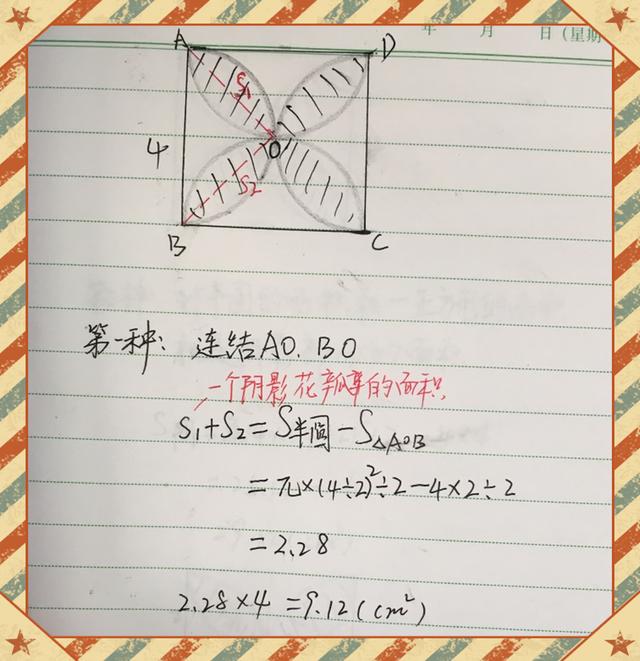 年 月 日(星期
A D
S₁
4 O
S₂
B C
第一种: 连结AO. BO
一个阴影花瓣的面积
S₁+S₂=S半圆-S△AOB
=π×(4÷2)²÷2-4×2÷2
=2.28
2.28×4=9.12(cm²)